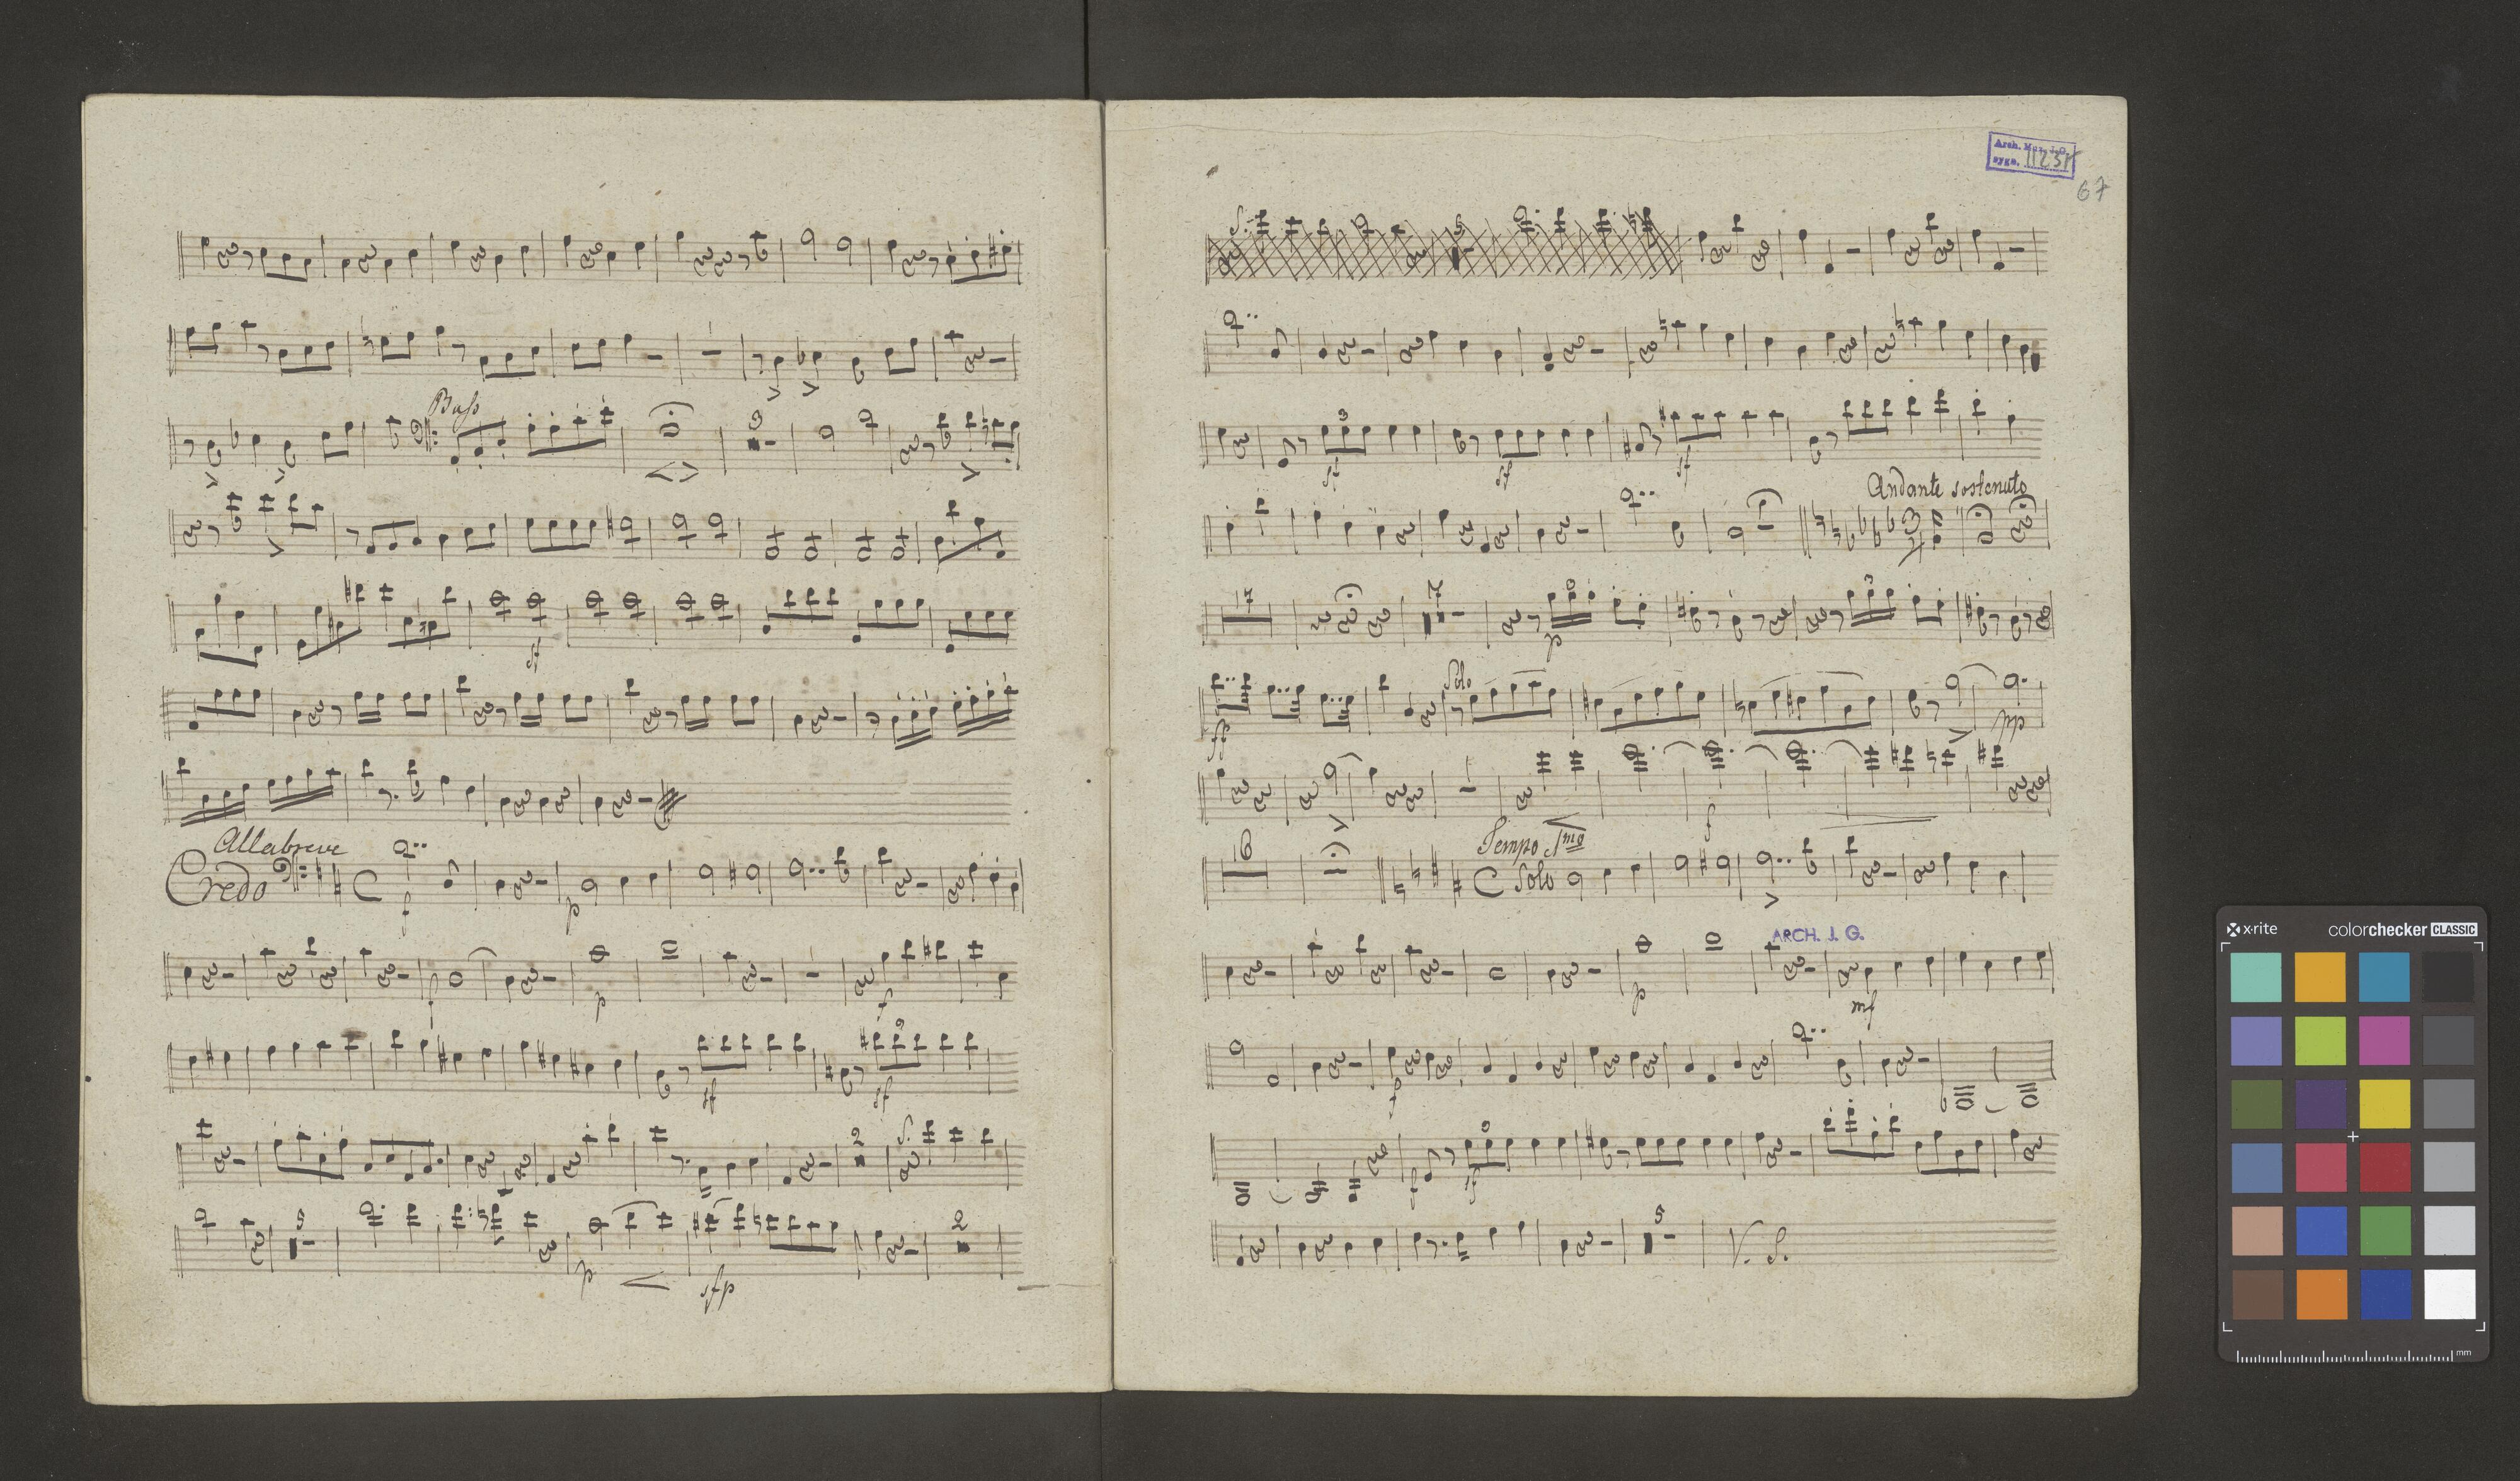 Bass
3
sf
Allabreve
Credo
C
f
p
f
p
f
sf
sf
2
5
p
sfp
2
Arch. Muz. J.G.
sygn. 11231
67
5
3
sf
sf
sf
Andante sostenuto
17
7
p
3
ff
Solo
pp
f
16
Tempo Imo
C Solo
ARCH. J. G.
p
mf
f
f
sf
5
V. S.
x·rite
colorchecker CLASSIC
mm